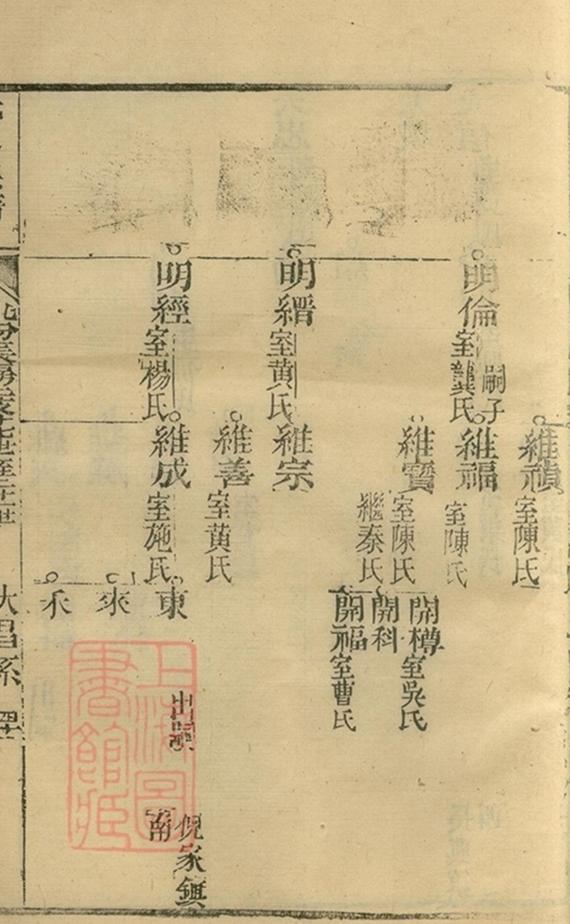 維禎
室陳氏
明倫
嗣子
室龔氏
維福
室陳氏
維寶
室陳氏
繼泰氏
開樽
室吳氏
開科
開福
室曹氏
明縉
室黃氏
維宗
維善
室黃氏
明經
室楊氏
維成
室施氏
東
出嗣
倪家鎮
南
來
禾
上海圖
書館藏